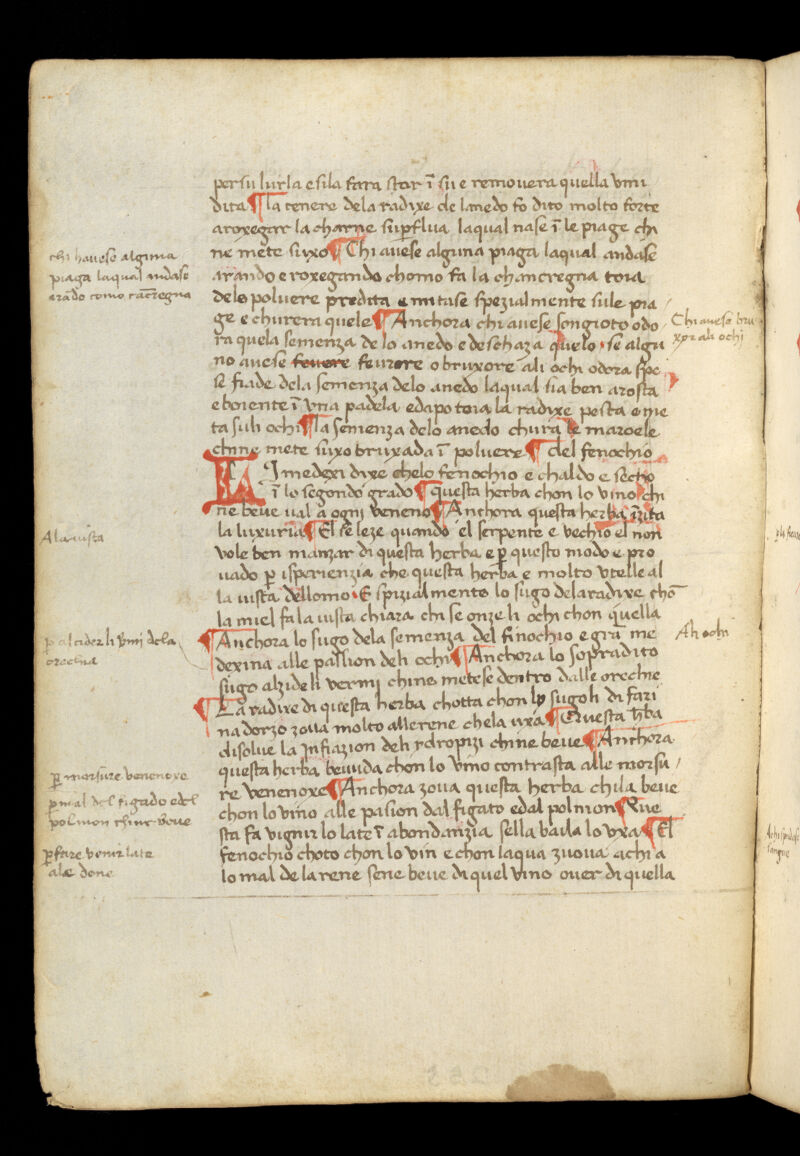 per su lurla e sila fara star ī su e removera quella vmi
dita ¶ la cenere dela radixe de lanedo fo dito molto forte
a roxegar la charne sup̱flua laqual nase ī le piage chi
ne mete suxo ¶ Chi avese alguna piaga laqual andase
arando e roxegando chomo fa la chancregna toia
delo poluere predita e mitase spezialmente sule pia
ge e churera quele ¶ Anchora chi auese songioto odo
ra quela semenza de lo anedo e deschaza quelo se algu
no auese feuore feuzore o bruxore ali ochi odora spe
se fiade dela semenza delo anedo laqual sia ben arosta
e boiente ī vna padela edapo toia la radixe pesta e me
ta suli ochi ¶ la semenza delo anedo chura le maroele
chi ne mete suxo bruxada ī poluere ¶ del fenochio
LA I medexi dixe chelo fenochio e chaldo e secho
ī lo segondo grado ¶ questa herba chon lo vino chi
ne beue ual a ogni veneno ¶ Anchora questa herba īzita
la luxuria ¶ El se leze quando el serpente e vechio el non
vole ben manzar di questa herba e p̱ questo modo e pro
uado p̱ isperienzia che questa herba e molto vtelle al
la uista dellomo E spizialmente lo sugo dela radixe chō
la miel fa la uista chiara chi se onze li ochi chon quella
¶ Anchora lo sugo dela semenza del finochio e gra me
dexina alle passion deli ochi ¶ Anchora lo sopradito
sugo alzide li vermi chi ne metese dentro dalle orechie
¶ La radixe di questa herba chotta chon lo sugo li di fari
na dorzo zoua molto alle rene che la uxa ¶ Questa hērba
disolue la Infiazion deli rdropizi chi ne beue ¶ Anchora
questa herba beuuda chon lo vino contrasta alle morsu /
re venenoxe ¶ Anchora zoua questa herba chi la beue
chon lo vino alle pasion dal figato e dal polmon ¶ Que
sta fa vignir lo late ī abondanzia se lla baila lo vxa ¶ El
fenochio choto chon lo vin e chon laqua zuoua a chi a
lo mal de la rene se ne beue di quel vino ouer di quella
chi hauese alguna
piaga laqual andase
arādo como cācregna
Chi auese bru
xor ali ochi
A la uista
p̱ alcider li vermi dela
orechia
Ali ochi
p̱ morsure venenoxe
p̱ mal del figado e del
polmon chi ne beue
p̱ fare venir late
ale done